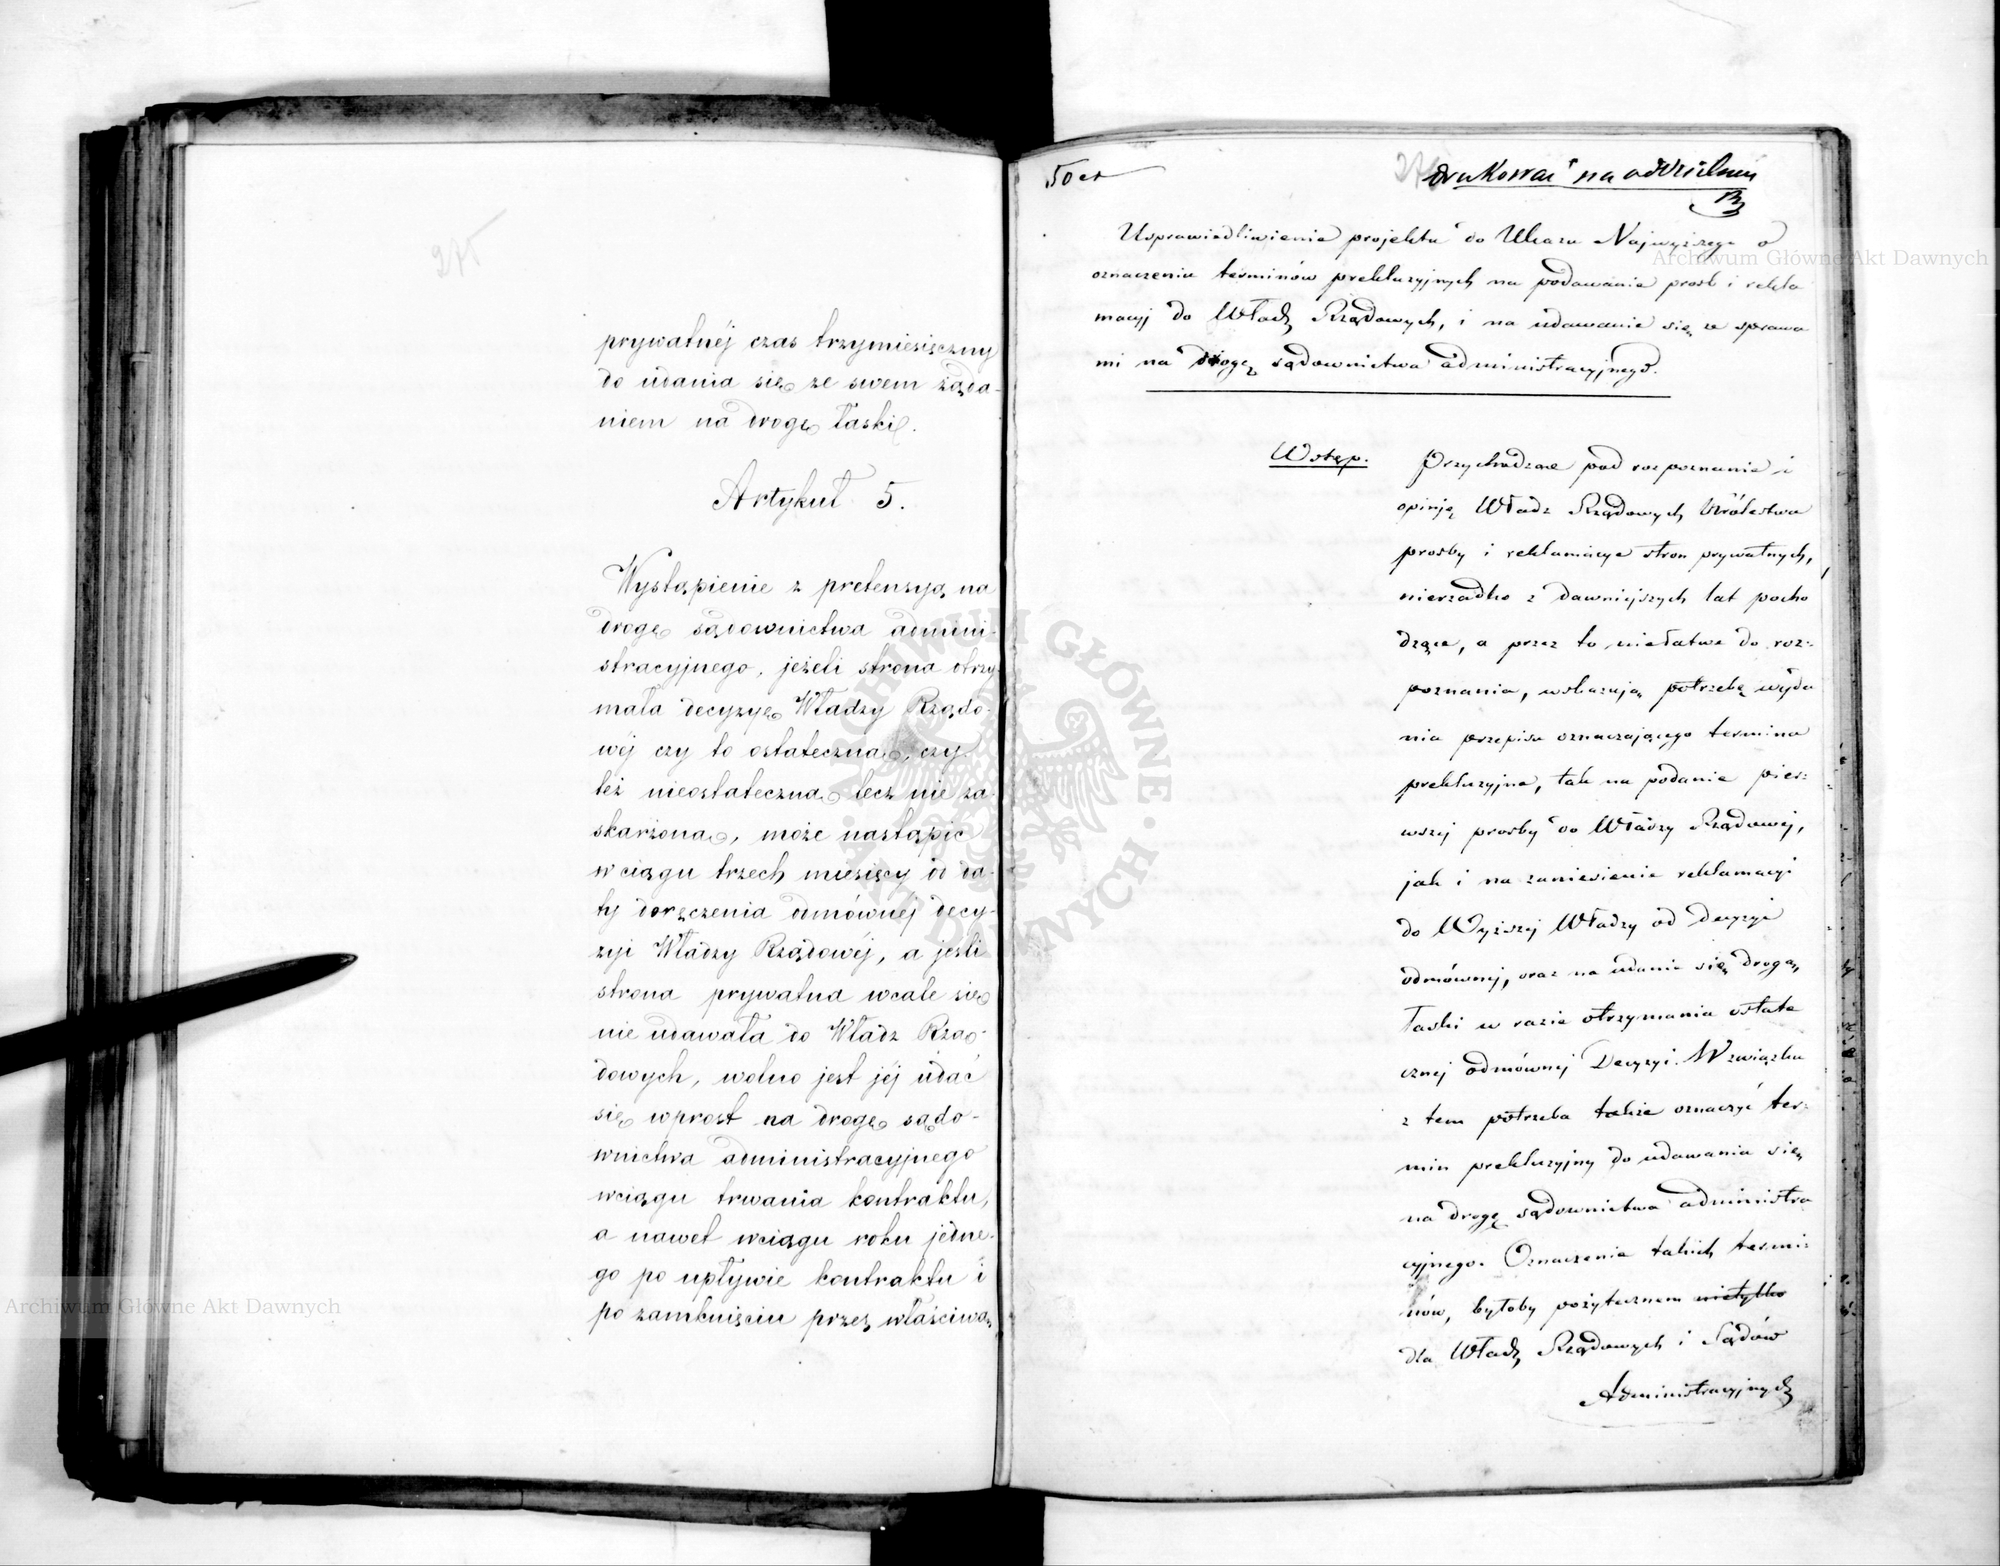 275
prywatnéj czas trzymiesięczny
do udania się ze swem żąda-
niem na drogę łaski.
Artykuł 5.
Wystąpienie z pretensyą na
drogę sądownictwa admini-
stracyjnego, jeżeli strona otrzy-
mała decyzyę Władzy Rządo-
wéj czy to ostateczną, czy
też nieostateczną lecz nie za-
skarżoną, może nastąpić
wciągu trzech miesięcy od da-
ty doręczenia odmównéj decy-
zyi Władzy Rządowéj, a jeśli
strona prywatna wcale się
nie udawała do Władz Rzą-
dowych, wolno jest jéj udać
się wprost na drogę sądo-
wnictwa administracyjnego
wciągu trwania kontraktu,
a nawet wciągu roku jedne-
go po upływie kontraktu i
po zamknięciu przez właściwą
50
drukować na oddzielnéj
Usprawiedliwienie projektu do Ukazu Najwyższego o
oznaczeniu terminów prekluzyjnych na podawanie prośb i rekla
macyj do Władz Rządowych, i na udawanie się ze sprawa
mi na drogę sądownictwa administracyjnego.
Wstęp.
Przychodzące pod rozpoznanie i
opinję Władz Rządowych Królestwa
prośby i reklamacye stron prywatnych,
nierzadko z dawniejszych lat pocho
dzące, a przez to niełatwe do roz-
poznania, wskazują potrzebę wyda
nia przepisu oznaczającego termina
prekluzyjne, tak na podanie pier-
wszej prośby do Władzy Rządowej,
jak i na zaniesienie reklamacyi
do Wyższej Władzy od decyzyi
odmównej, oraz na udanie się drogą
łaski w razie otrzymania ostate
cznej odmównej Decyzyi. W związku
z tem potrzeba także oznaczyć ter-
min prekluzyjny do udawania się
na drogę sądownictwa administra
cyjnego. Oznaczenie takich termi-
nów, byłoby pożytecznem nietylko
dla Władz Rządowych i Sądów
Administracyjnych
Archiwum Główne Akt Dawnych
Archiwum Główne Akt Dawnych
ARCHIWUM GŁÓWNE · AKT DAWNYCH ·